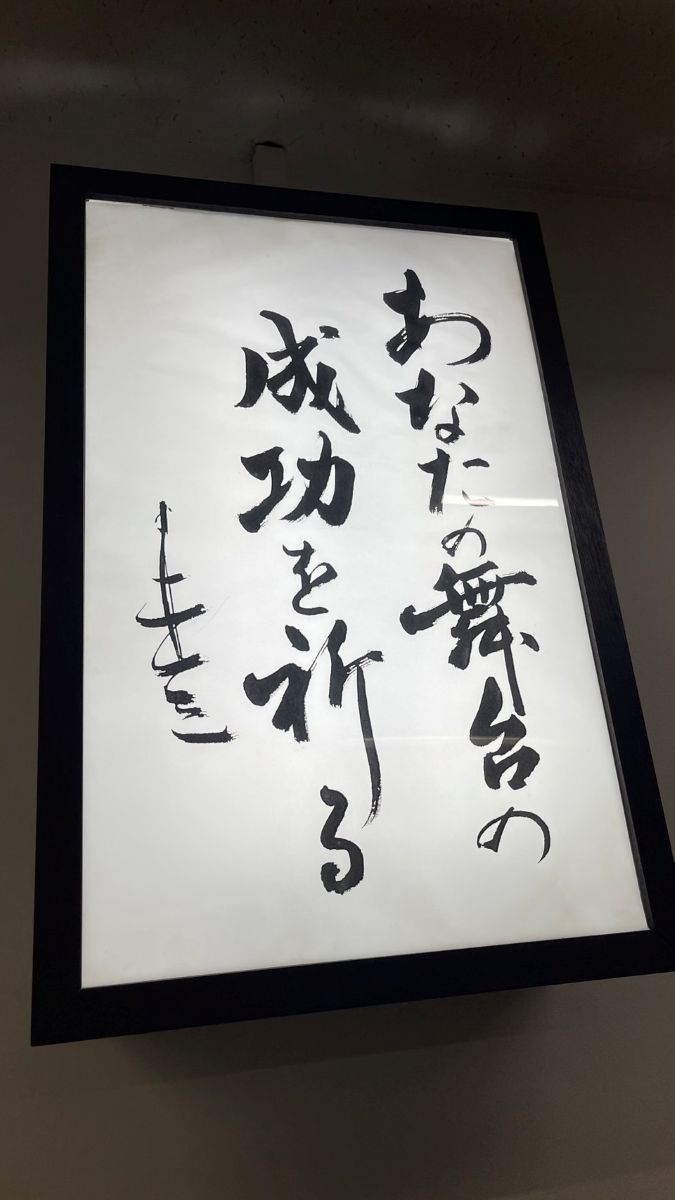 あなたの舞台の
成功を祈る